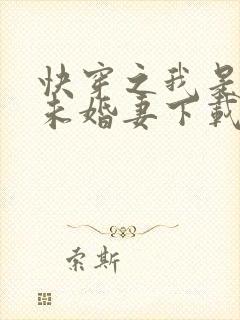 快穿之我是
未婚妻下载
索斯